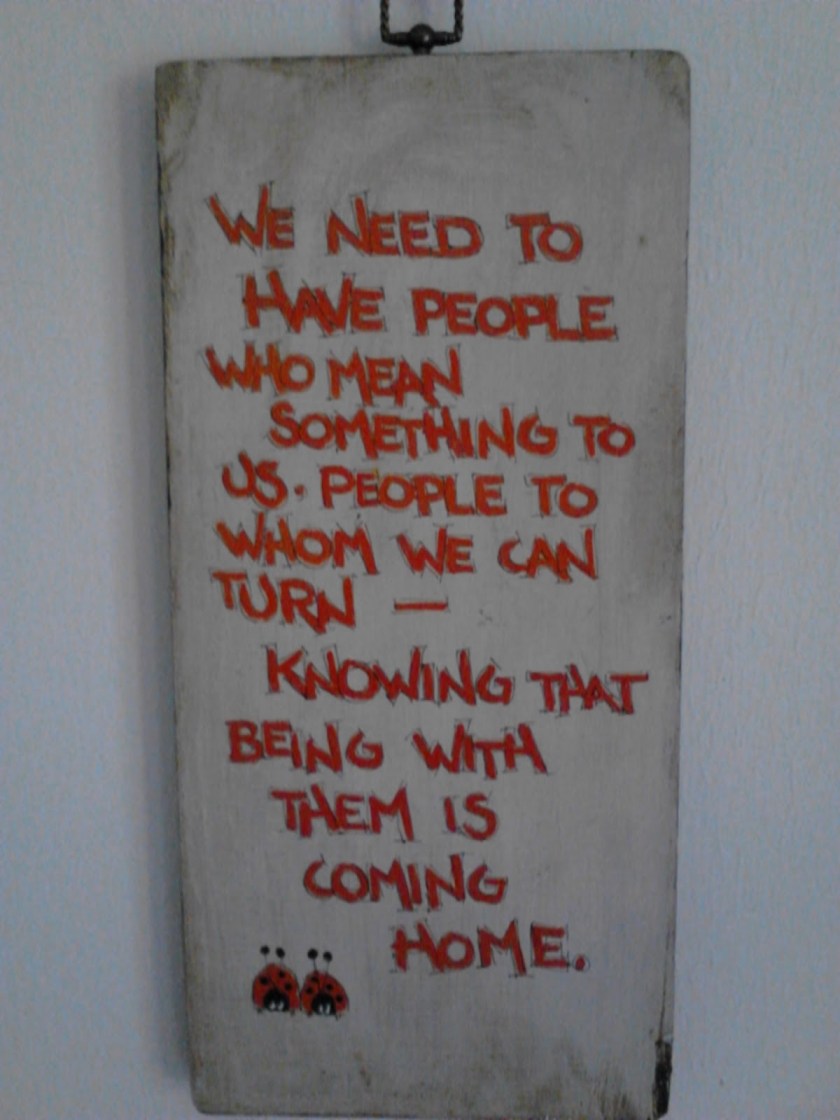 WE NEED TO
HAVE PEOPLE
WHO MEAN
SOMETHING TO
US. PEOPLE TO
WHOM WE CAN
TURN —
KNOWING THAT
BEING WITH
THEM IS
COMING
HOME.